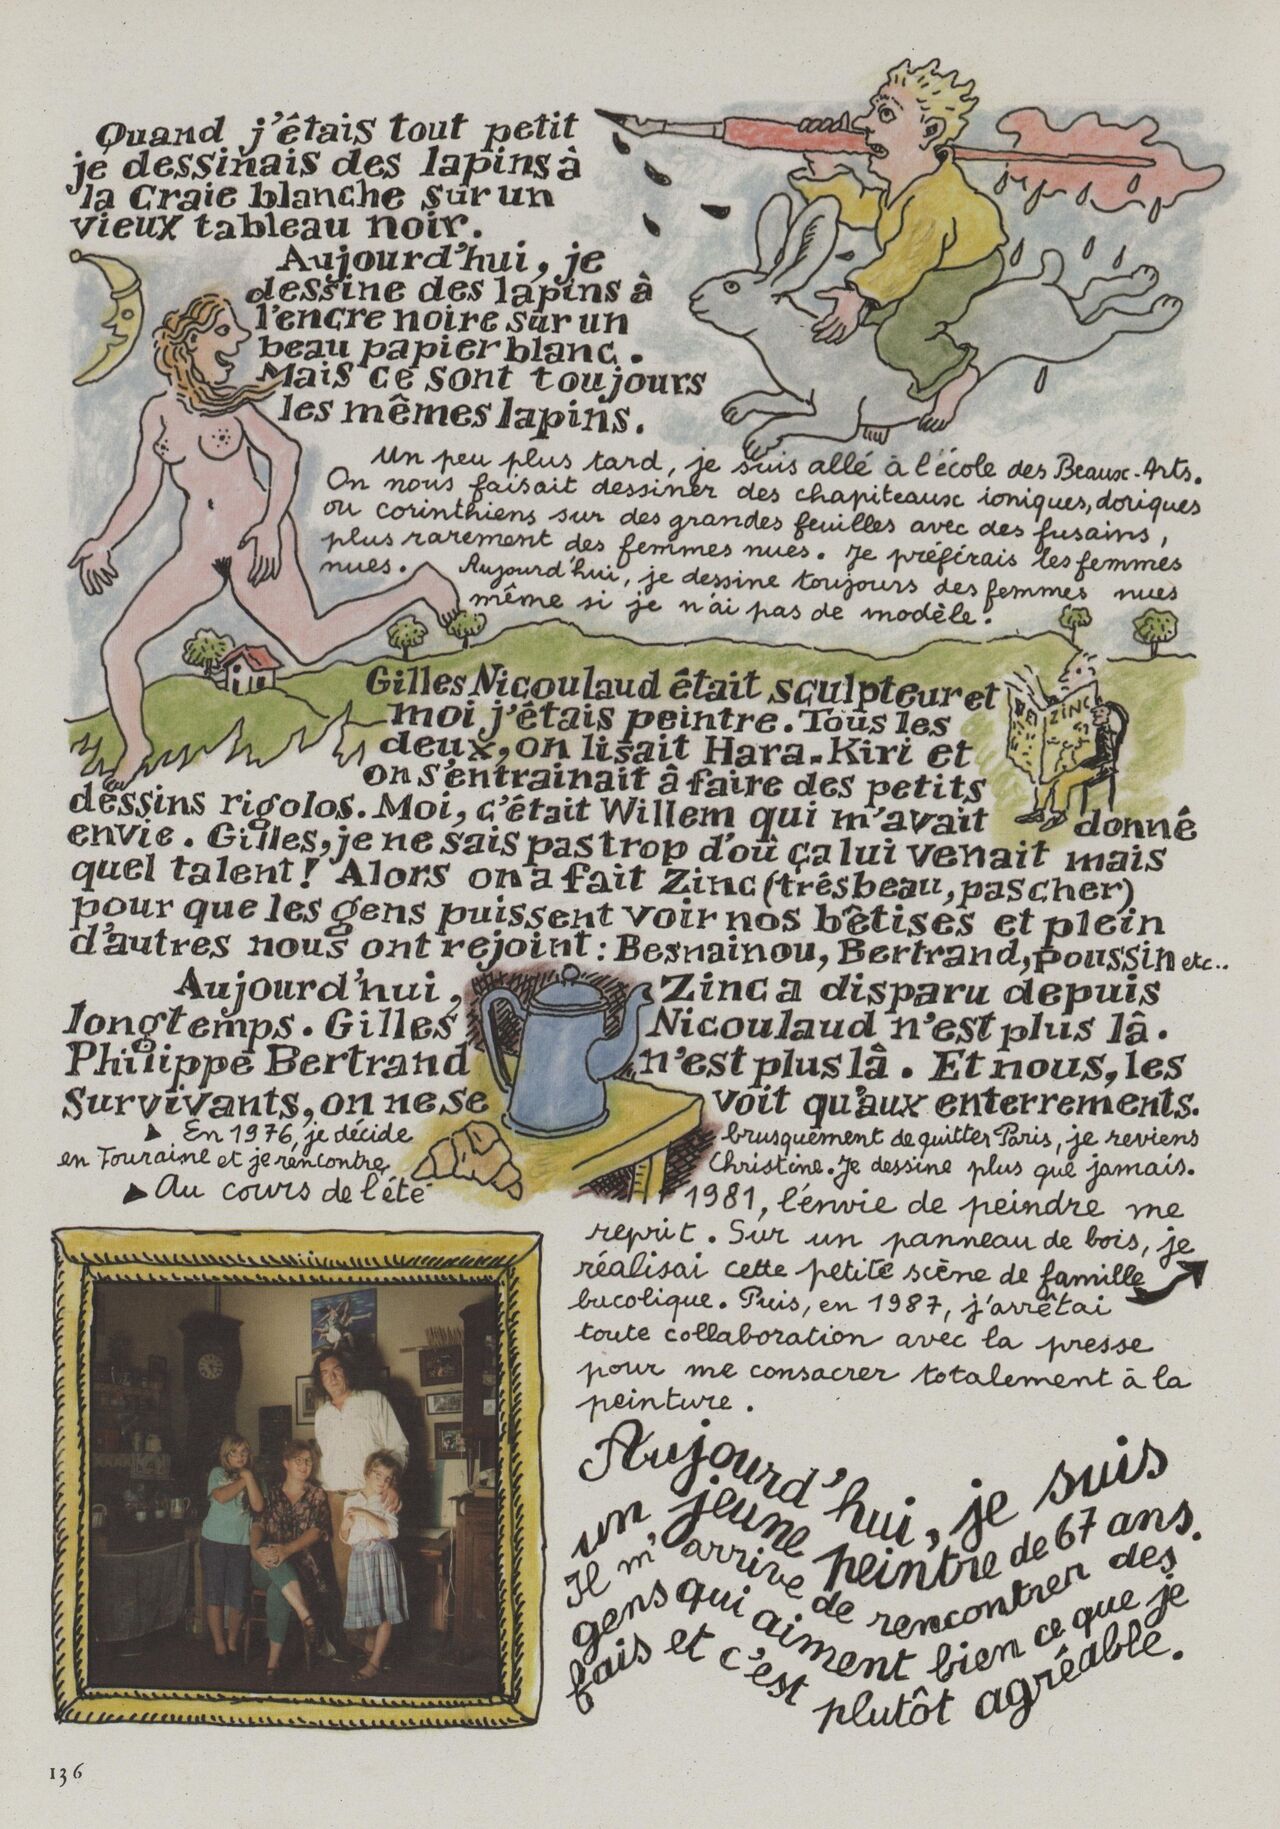 Quand j'étais tout petit
je dessinais des lapins à
la Craie blanche sur un
vieux tableau noir.
Aujourd'hui, je
dessine des lapins à
l'encre noire sur un
beau papier blanc.
Mais ce sont toujours
les mêmes lapins.
Un peu plus tard, je suis allé à l'école des Beaux-Arts.
On nous faisait dessiner des chapiteaux ioniques, doriques
ou corinthiens sur des grandes feuilles avec des fusains,
plus rarement des femmes nues. Je préférais les femmes
nues. Aujourd'hui, je dessine toujours des femmes nues
même si je n'ai pas de modèle.
Gilles Nicoulaud était sculpteur et
moi j'étais peintre. Tous les
deux, on lisait Hara-Kiri et
on s'entrainait à faire des petits
dessins rigolos. Moi, c'était Willem qui m'avait donné
envie. Gilles, je ne sais pas trop d'où ça lui venait mais
quel talent! Alors on a fait Zinc (très beau, pas cher)
pour que les gens puissent voir nos bêtises et plein
d'autres nous ont rejoint: Besnainou, Bertrand, Poussin etc..
ZINC
Aujourd'hui, Zinc a disparu depuis
longtemps. Gilles Nicoulaud n'est plus là.
Philippe Bertrand n'est plus là. Et nous, les
survivants, on ne se voit qu'aux enterrements.
En 1976, je décide brusquement de quitter Paris, je reviens
en Touraine et je rencontre Christine. Je dessine plus que jamais.
Au cours de l'été 1981, l'envie de peindre me
reprit. Sur un panneau de bois, je
réalisai cette petite scène de famille
bucolique. Puis, en 1987, j'arrêtai
toute collaboration avec la presse
pour me consacrer totalement à la
peinture.
Aujourd'hui, je suis
un jeune peintre de 67 ans.
Il m'arrive de rencontrer des
gens qui aiment bien ce que je
fais et c'est plutôt agréable.
136